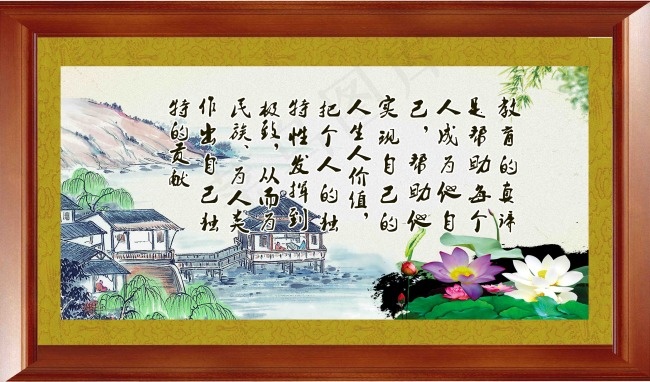 教育的真谛
是帮助每个
人成为他自
己，帮助他
实现自己的
人生人价值，
把个人的独
特性发挥到
极致，从而为
民族、为人类
作出自己独
特的贡献